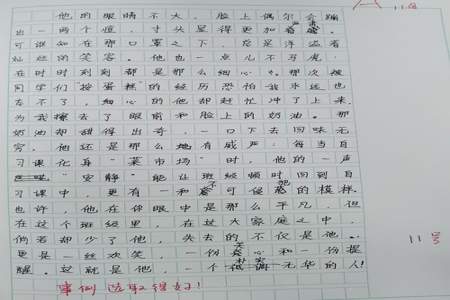 他的眼睛不大，脸上偶尔会蹦
出一两个痘，寸头显得更加严肃。
可谁知在那口罩之下，总是洋溢着
灿烂的笑容。他也一点儿不马虎，
在时时刻刻都是那么细心。那次被
同学们按蛋糕的经历恐怕我永远也
忘不了，细心的他却赶忙冲了上来，
为我擦去了眼前和脸上的奶油。那
奶油却甜得出奇，一口下去回味无
穷。他还是那么地有威严：每当自
习课化身“菜市场”时，他的一声
“安静”能让班级顿时回到自
习课中，更有一种不可侵犯的模样。
也许，他在你眼中是那么平凡，但
在这个班级里，在这大家庭之中，
倘若却少了他，失去的不仅是他，
更是一丝欢笑，一份关心和一份提
醒。这就是他，一个朴实无华的人！
事例选取得好！
11号